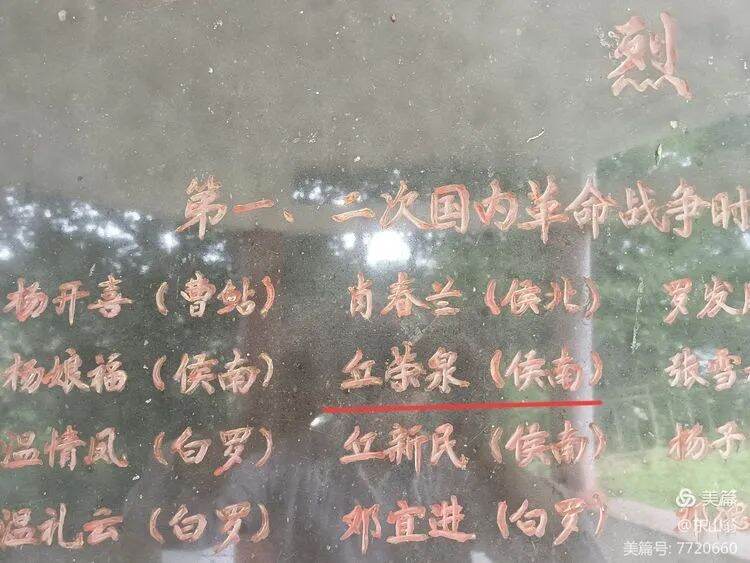 烈
第一、二次国内革命战争时
杨开喜（曹鲇） 肖春兰（侯北） 罗发
杨娘福（侯南） 丘荣泉（侯南） 张雪
温情凤（白罗） 丘新民（侯南） 杨子
温礼云（白罗） 邓宜进（白罗） 邓
美篇
美篇号: 7720660